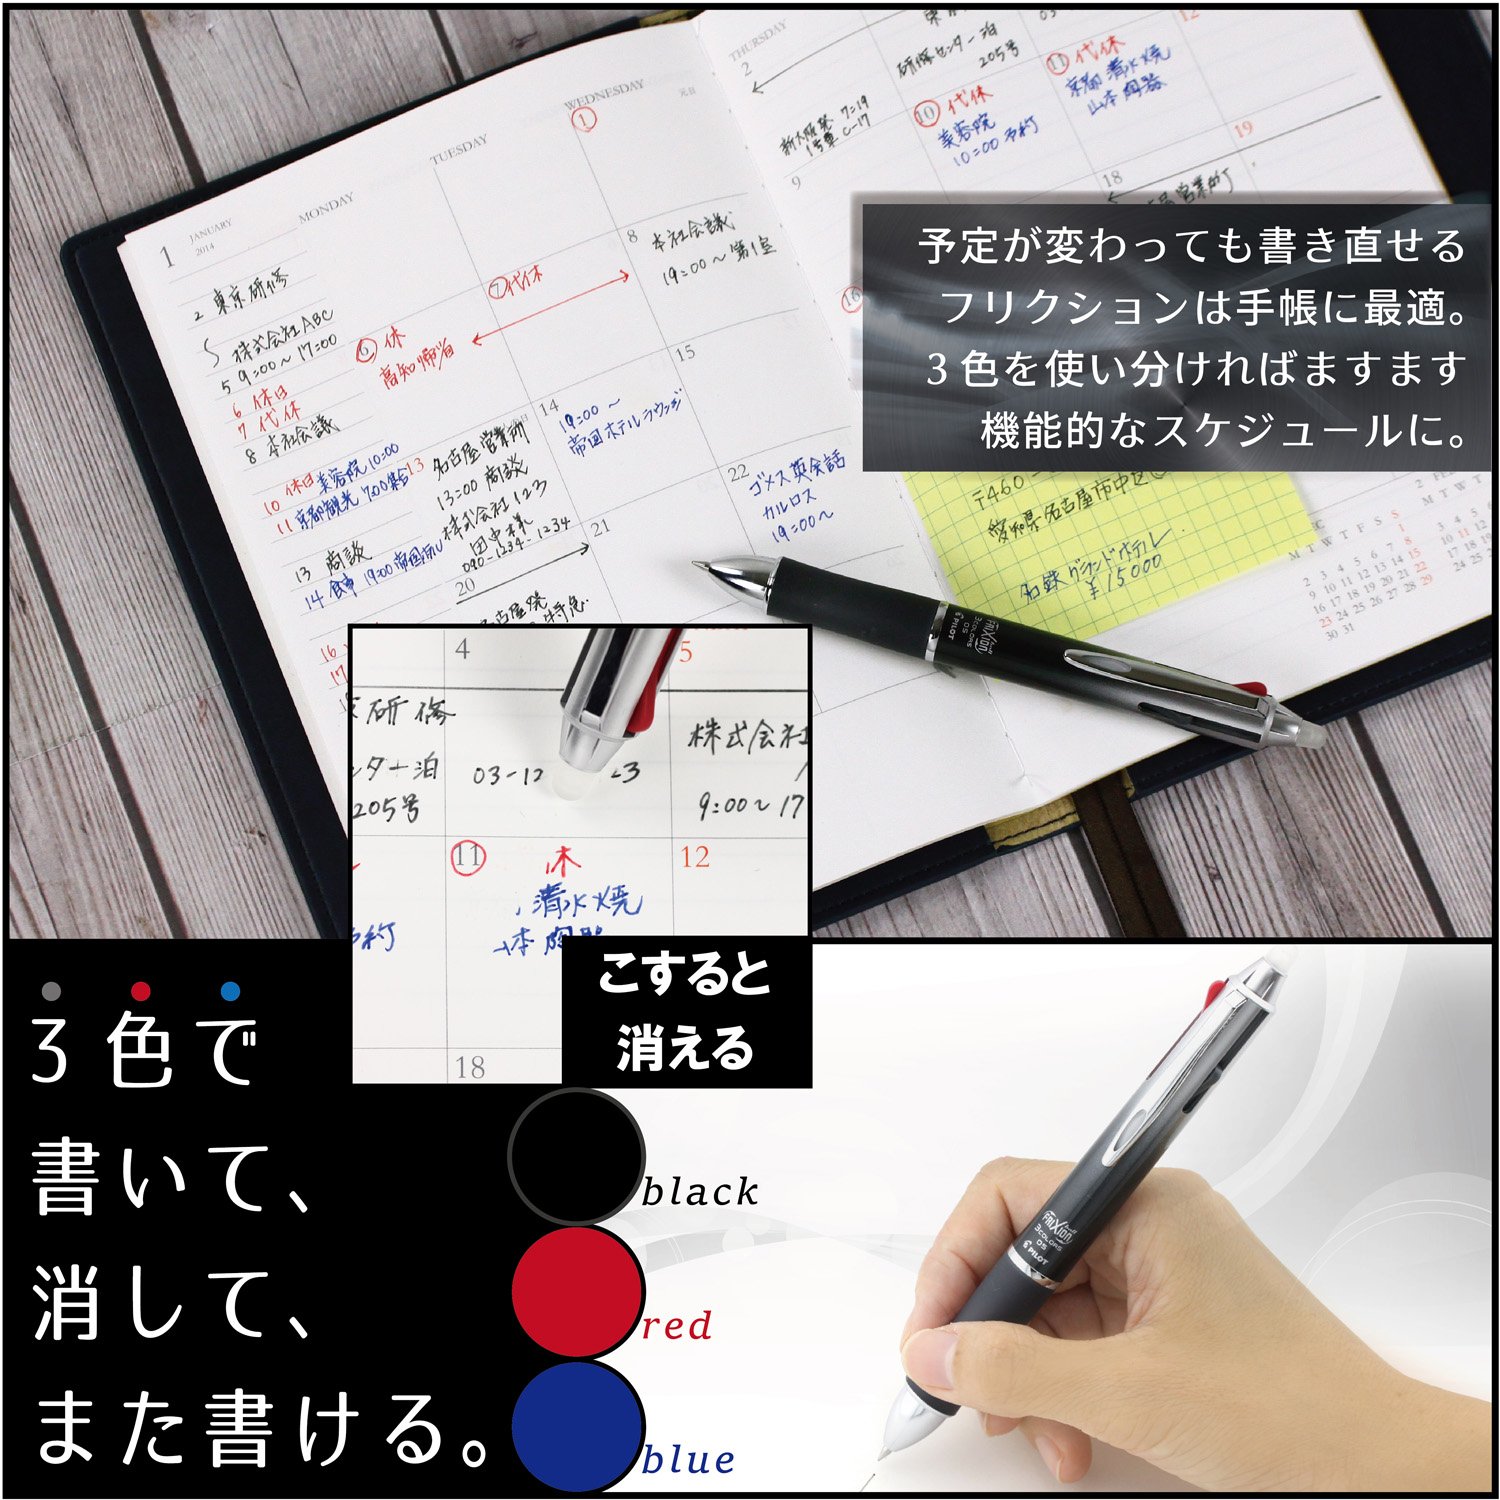 1
JANUARY
2014
MONDAY
TUESDAY
WEDNESDAY
元日
1
2 東京研修
株式会社ABC
5 9:00〜17:00
6 休日
7 代休
8 本社会議
10 休日 美容院 10:00
11 京都観光 7:00集合
13 商談
14 食事 19:00 帝国ホテル
16
17
6 休
高知帰省
7 代休
8
本社会議
19:00〜 第1室
13
名古屋営業所
13:00 商談
株式会社123
田中様
090-1234-1234
14
19:00〜
帝国ホテルラウンジ
15
20
21
22
ゴメス英会話
カルロス
19:00〜
THURSDAY
2
研修センター泊
205号
新大阪発 7:19
1号車 C-17
9
10 代休
美容院
10:00 予約
11 代休
京都 清水焼
山本陶器
12
16
18
19
予定が変わっても書き直せる
フリクションは手帳に最適。
3色を使い分ければますます
機能的なスケジュールに。
〒460-
愛知県名古屋市中区
名鉄グランドホテル
¥15000
M T W T F S S
1
2 3 4 5 6 7 8
9 10 11 12 13 14 15
16 17 18 19 20 21 22
23 24 25 26 27 28 29
30 31
FRIXion ball
3COLORS
05
PILOT
4
5
研修
ンター泊
205号
03-12
23
株式会社
9:00〜17
11
休
12
清水焼
本陶器
予約
18
こすると
消える
3色で
書いて、
消して、
また書ける。
black
red
blue
FRIXion ball
3COLORS
05
PILOT